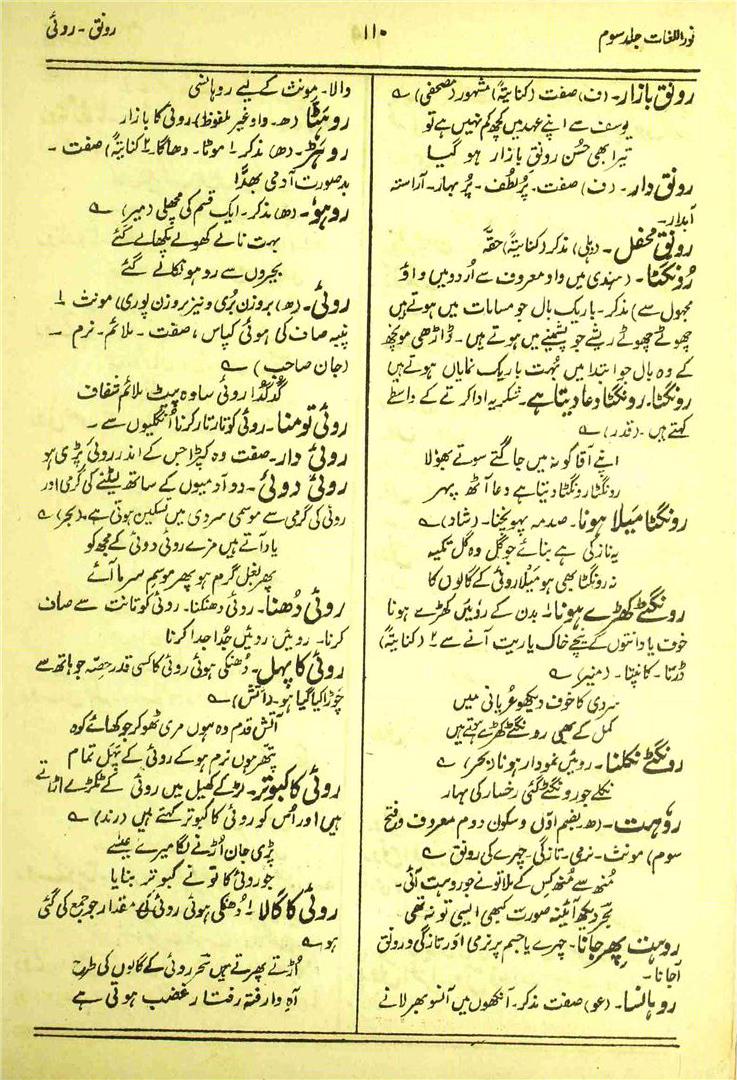 نور اللغات جلد سوم
۱۱۰
رونق - روئی
رونق بازار۔ (ف) صفت (کنایۃً) مشہور (مصحفی) ؎
یوسف سے اپنے عہد میں کچھ کم نہیں ہے تو
تیرا بھی حسن رونق بازار ہو گیا
رونق دار۔ (ف) صفت۔ پُر لطف۔ پُر بہار۔ آراستہ
آبدار۔
رونق محفل۔ (دہلی) مذکر (کنایۃً) حقہ
رُونگٹا۔ (ہندی میں واو معروف سے اُردو میں واؤ
مجہول سے) مذکر۔ باریک بال جو مسامات میں ہوتے ہیں
چھوٹے چھوٹے ریشے جو پشمینے میں ہوتے ہیں۔ ڈاڑھی مونچھ
کے وہ بال جو ابتدا میں بُہت باریک نمایاں ہوتے ہیں
رونگٹا۔ رونگٹا دعا دیتا ہے۔ شکریہ ادا کرتے کے واسطے
کہتے ہیں۔ (قدر) ؎
اپنے آقا کو نہ میں جاگتے سوتے بھولا
رونگٹا رونگٹا دیتا ہے دعا آٹھ پہر
رونگٹا مَیلا ہونا۔ صدمہ پہونچنا۔ (شاد) ؎
یہ نازکی ہے بنائے جو گل وہ گل تکیہ
نہ رونگٹا بھی ہو مَیلا روئی کے گالوں کا
رونگٹے کھڑے ہونا ۱ بدن کے روئیں کھڑے ہونا
خوف یا دانتوں کے نیچے خاک یا ریت آنے سے ۲ (کنایۃً)
ڈرنا۔ کانپنا۔ (منیر) ؎
سردی کا خوف دیکھو عُریانی میں
کمل کے بھی رونگٹے کھڑے رہتے ہیں
رونگٹے نکلنا۔ روئیں نمودار ہونا (بحر) ؎
نکلے جو رونگٹے گئی رخسار کی بہار
روہت۔ (ھ۔ بضم اوّل وسکون دوم معروف وفتح
سوم) مونث۔ نرمی۔ تازگی۔ چہرے کی رونق ؎
مُنھ سے مُنھ کس کے ملا تونے جو روہت آئی۔
بحر دیکھ آئینہ صورت کبھی ایسی تو نہ تھی
روہت پھر جانا۔ چہرے یا جسم پر نرمی اور تازگی و رونق
آجانا۔
روہانسا۔ (عو) صفت مذکر۔ آنکھوں میں آنسو بھر لانے
والا۔ مونث کے لیے روہانسی
روہٹا (ھ۔ واو غیر ملفوظ) روئی کا بازار
روہڑ۔ (ھ) مذکر۔ ۱ موٹا۔ دھاگا۔ ۲ کنایۃً) صفت۔
بدصورت آدمی بھدّا
روہو۔ (ھ) مذکر۔ ایک قسم کی مچھلی (میر) ؎
بہت نالے کھولے لکھالے گئے
بجروں سے روہو نکالے گئے
روئی۔ (ھ) بروزن بُری ونیز بروزن پوری) مونث ۱
پنبہ صاف کی ہوئی کپاس، صفت۔ ملائم۔ نرم۔
(جان صاحب) ؎
گُدگُدا روئی سا وہ پیٹ ملائم شفاف
روئی تومنا۔ روئی کو تار تار کرنا اُنگلیوں سے۔
روئی دار۔ صفت وہ کپڑا جس کے اندر روئی پڑی ہو
روئی دوئی۔ دو آدمیوں کے ساتھ لیٹنے کی گرمی اور
روئی کی گرمی سے موسمی سردی میں تسکین ہوتی ہے۔ (بحر) ؎
یاد آتے ہیں مزے روئی دوئی کے مجھ کو
پھر بغل گرم ہو پھر موسم سرما آئے
روئی دُھنا۔ روئی دھنکنا۔ روئی کو تانت سے صاف
کرنا۔ روئیں روئیں جُدا جدا کرنا
روئی کا پہل۔ دُھنکی ہوئی روئی کا کسی قدر حِصّہ جو ہاتھ سے
چوڑا کیا گیا ہو۔ (آتش) ؎
آتش قدم وہ ہوں مری ٹھوکر جو کھائے کوہ
پتھر ہوں نرم ہو کے روئی کے پَہَل تمام
روئی کا کبوتر۔ لڑکے کھیل میں روئی کے ٹکڑے اڑاتے
ہیں اور اُس کو روئی کا کبوتر کہتے ہیں (رند) ؎
پڑی جان اُڑنے لگا میرے عیسٰے
جو روئی کا تونے کبوتر بنایا
روئی کا گالا ۱ دُھنکی ہوئی روئی کی مقدار جو جمع کی گئی
ہو ؎
اُڑتے پھرتے ہیں شجر روئی کے گالوں کی طرح
آہ وارفتہ رفتار غضب ہوتی ہے